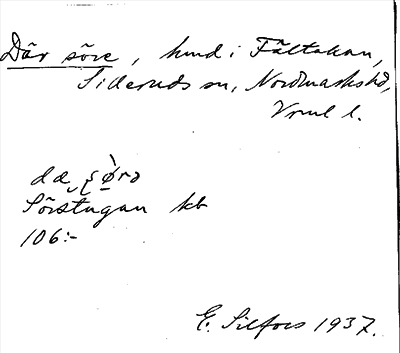 Där söre, hmd i Fältakan,
Silleruds sn, Nordmarks hd,
Vrml l.
dæ ʂø̀rə
Sörstugan kb
106:-
E. Silfors 1937.